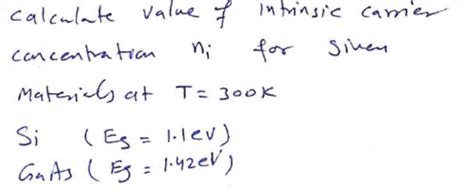 calculate value of intrinsic carrier
concentration ni for given
Materials at T = 300K
Si ( Eg = 1.1ev)
GaAs ( Eg = 1.42eV)